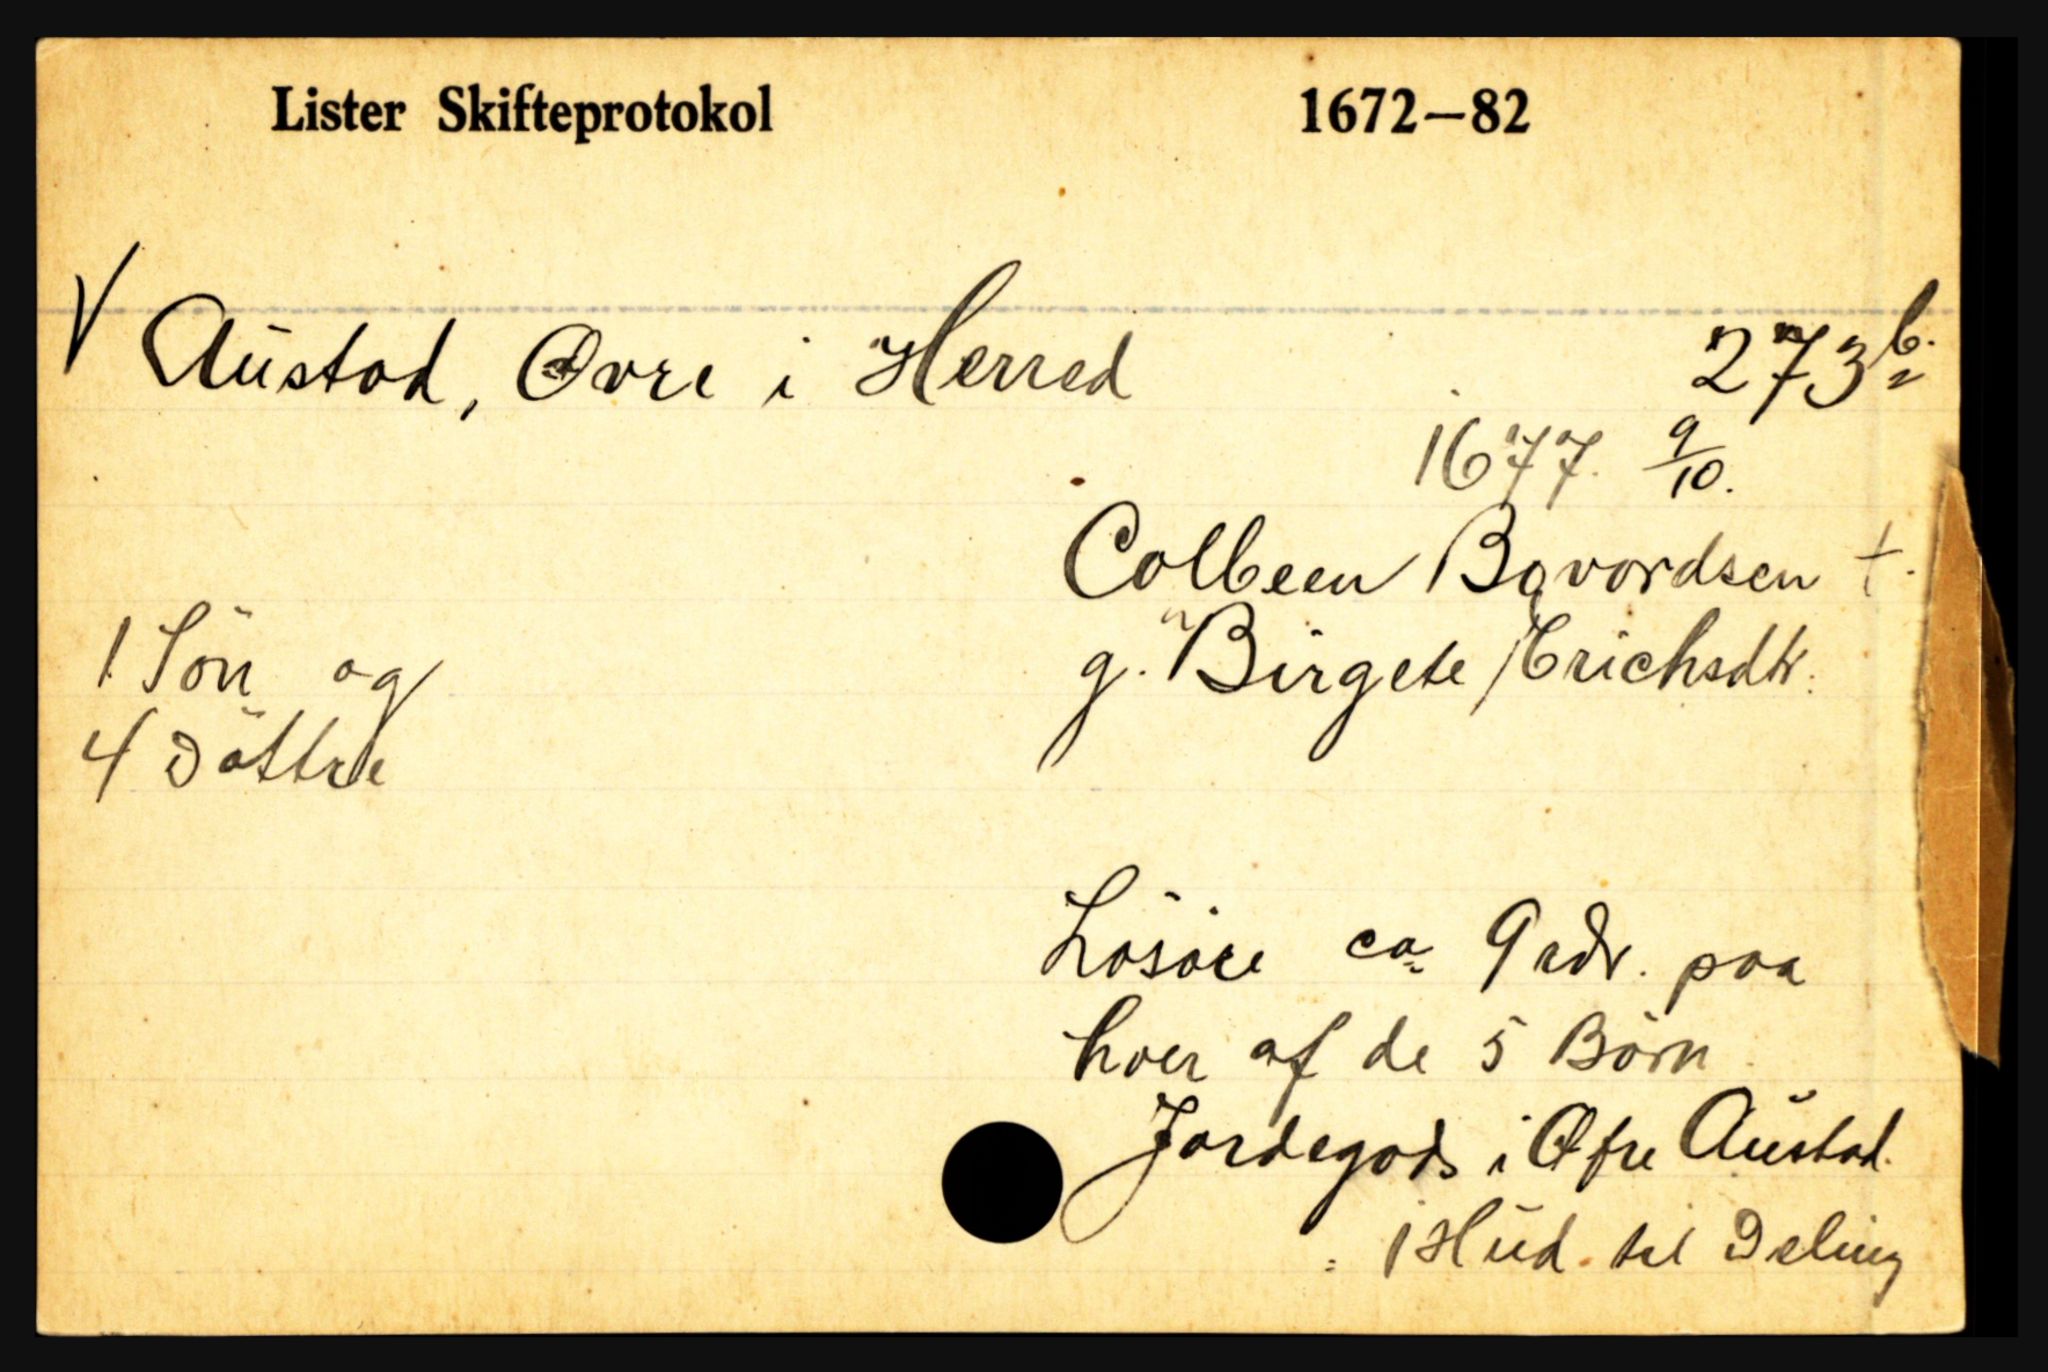 Lister Skifteprotokol 1672—82
V Austad, Øvre i Herred 273 b.
1677. 9/10.
Colbeen Bovordsen †.
1 Sön og g. Birgete Erichsdtr.
4 Döttre
Lösöre ca 9 rdr. paa
hver af de 5 Börn
Jordegods i Øfre Austad.
1 Hud til Deling